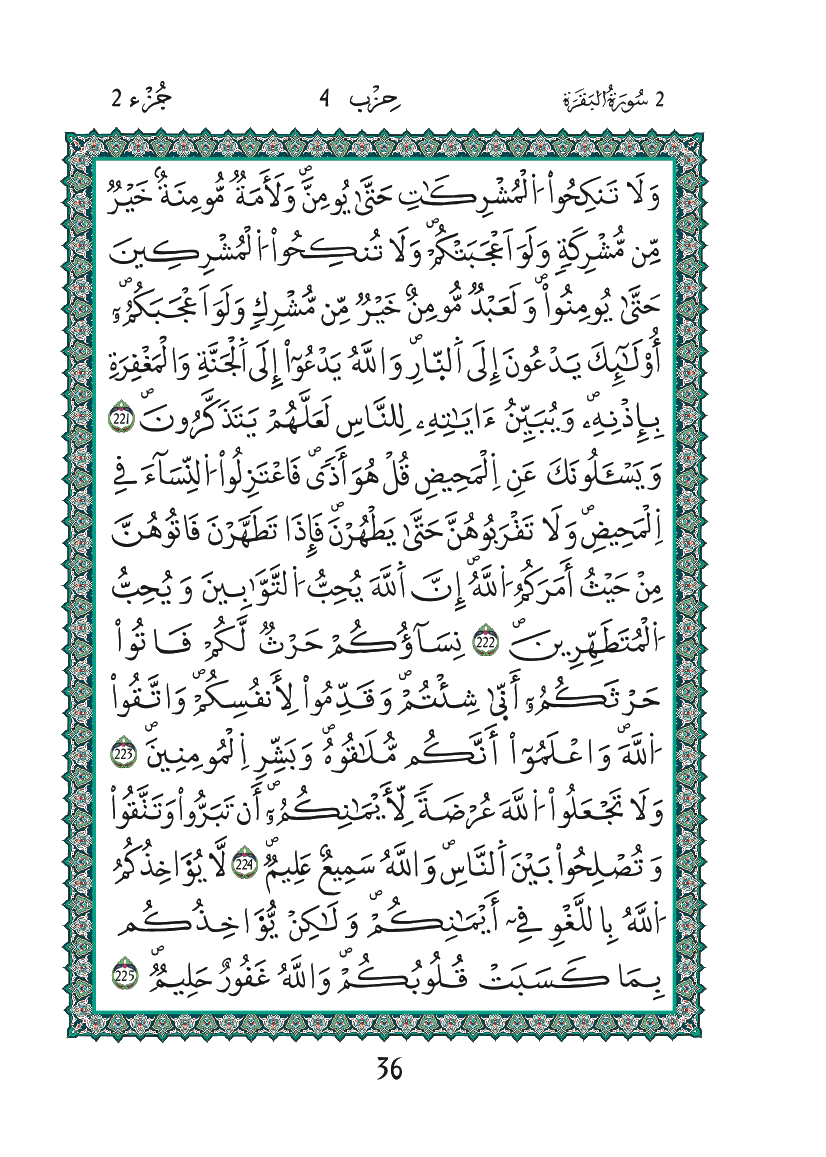 2 سُورَةُ الْبَقَرَة حِزْب 4 جُزْء 2
وَلَا تَنكِحُواْ اُ۬لْمُشْرِكَٰتِ حَتَّىٰ يُومِنَّۖ وَلَأَمَةٞ مُّومِنَةٌ خَيْرٞ
مِّن مُّشْرِكَةٖ وَلَوَ اَعْجَبَتْكُمْۖ وَلَا تُنكِحُواْ اُ۬لْمُشْرِكِينَ
حَتَّىٰ يُومِنُواْۖ وَلَعَبْدٞ مُّومِنٌ خَيْرٞ مِّن مُّشْرِكٖ وَلَوَ اَعْجَبَكُمُۥٓۖ
أُوْلَٰٓئِكَ يَدْعُونَ إِلَى اَ۬لنّ۪ارِۖ وَاللَّهُ يَدْعُوٓاْ إِلَى اَ۬لْجَنَّةِ وَالْمَغْفِرَةِ
بِإِذْنِهِۦۖ وَيُبَيِّنُ ءَايَٰتِهِۦ لِلنَّاسِ لَعَلَّهُمْ يَتَذَكَّرُونَۖ 221
وَيَسْـَٔلُونَكَ عَنِ اِ۬لْمَحِيضِ قُلْ هُوَ أَذىٗ فَاعْتَزِلُواْ اُ۬لنِّسَآءَ فِے
اِ۬لْمَحِيضِۖ وَلَا تَقْرَبُوهُنَّ حَتَّىٰ يَطْهُرْنَۖ فَإِذَا تَطَهَّرْنَ فَاتُوهُنَّ
مِنْ حَيْثُ أَمَرَكُمُ اُ۬للَّهُۖ إِنَّ اَ۬للَّهَ يُحِبُّ اُ۬لتَّوَّٰبِينَ وَيُحِبُّ
اُ۬لْمُتَطَهِّرِينَۖ 222 نِسَآؤُكُمْ حَرْثٞ لَّكُمْ فَاتُواْ
حَرْثَكُمُۥٓ أَنّ۪يٰ شِئْتُمْۖ وَقَدِّمُواْ لِأَنفُسِكُمْۖ وَاتَّقُواْ
اُ۬للَّهَۖ وَاعْلَمُوٓاْ أَنَّكُم مُّلَٰقُوهُۖ وَبَشِّرِ اِ۬لْمُومِنِينَۖ 223
وَلَا تَجْعَلُواْ اُ۬للَّهَ عُرْضَةٗ لِّأَيْمَٰنِكُمُۥٓۖ أَن تَبَرُّواْ وَتَتَّقُواْ
وَتُصْلِحُواْ بَيْنَ اَ۬لنَّاسِۖ وَاللَّهُ سَمِيعٌ عَلِيمٞۖ 224 لَّا يُؤَاخِذُكُمُ
اُ۬للَّهُ بِاللَّغْوِ فِےٓ أَيْمَٰنِكُمْۖ وَلَٰكِنْ يُّؤَاخِذُكُم
بِمَا كَسَبَتْ قُلُوبُكُمْۖ وَاللَّهُ غَفُورٌ حَلِيمٞۖ 225
36